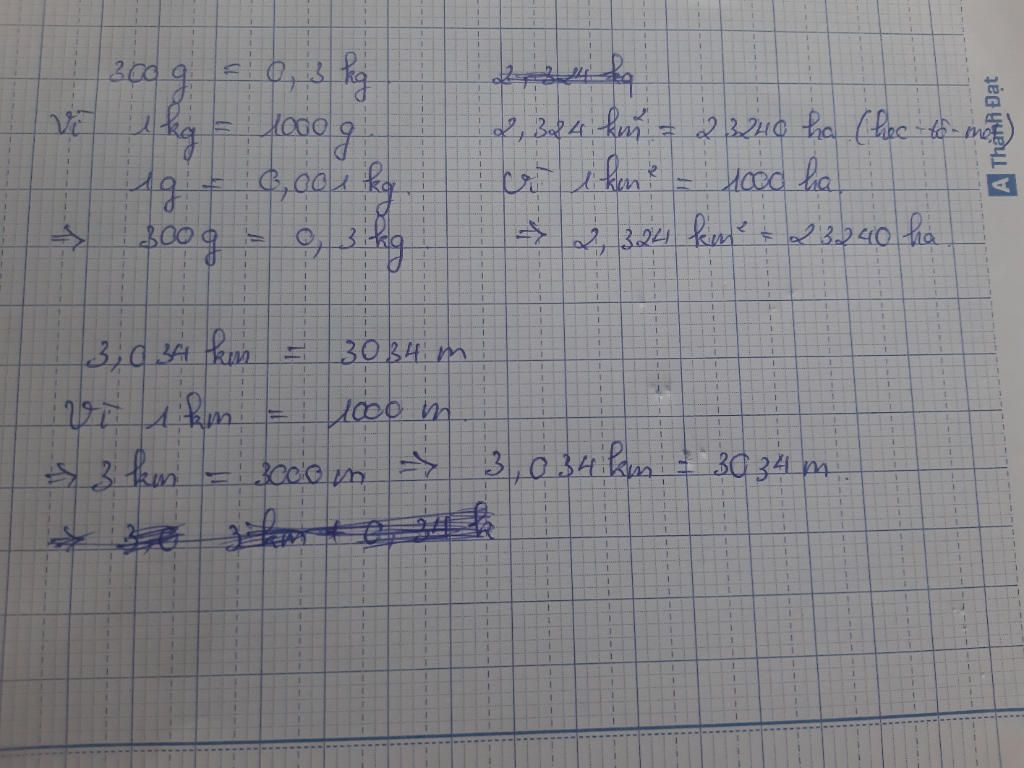 300g = 0,3 kg
Vì 1 kg = 1000 g.
1g = 0,001 kg.
=> 300g = 0,3 kg.
2,324 kg
2,324 km² = 23240 ha (héc-tô-mét)
Vì 1 km² = 1000 ha.
=> 2,324 km² = 23240 ha.
3,034 km = 3034 m
Vì 1 km = 1000 m.
=> 3 km = 3000 m => 3,034 km = 3034 m.
=> 3,0 3 km + 0,34 k
A Thành Đạt